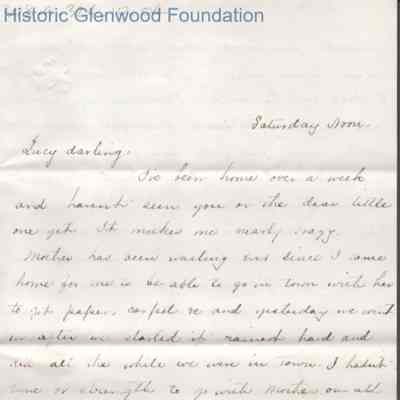 Historic Glenwood Foundation
Saturday Noon.
Lucy darling.
I've been home over a week
and havent seen you or the dear little
one yet. It makes me nearly crazy.
Mother has been waiting ever since I came
home for me to be able to go in town with her
to get paper, carpet &c and yesterday we went
in after we started it rained hard and
did all the while we were in town. I hadn't
time or strength to go with Mother on all